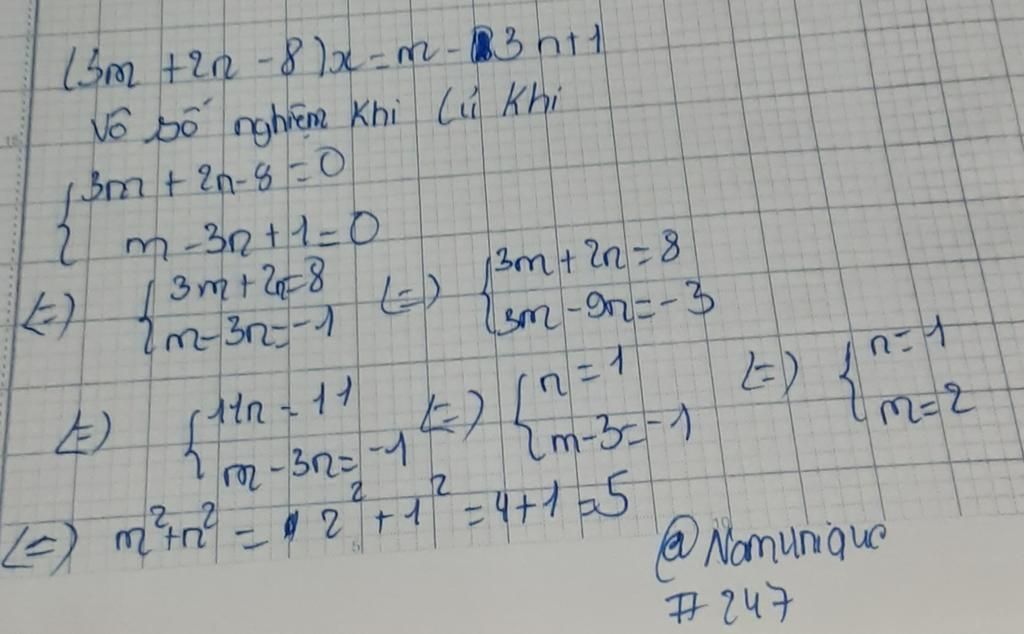 (3m + 2n - 8)x = m - 3n + 1
Vô số nghiệm khi
khi
{ 3m + 2n - 8 = 0
m - 3n + 1 = 0
(=) { 3m + 2n = 8 (=) { 3m + 2n = 8
m - 3n = -1 3m - 9n = -3
(=) { 11n = 11 (=) { n = 1 (=) { n = 1
m - 3n = -1 m - 3 = -1 m = 2
(=) m² + n² = 2² + 1² = 4 + 1 = 5
@Nomunique
# 247